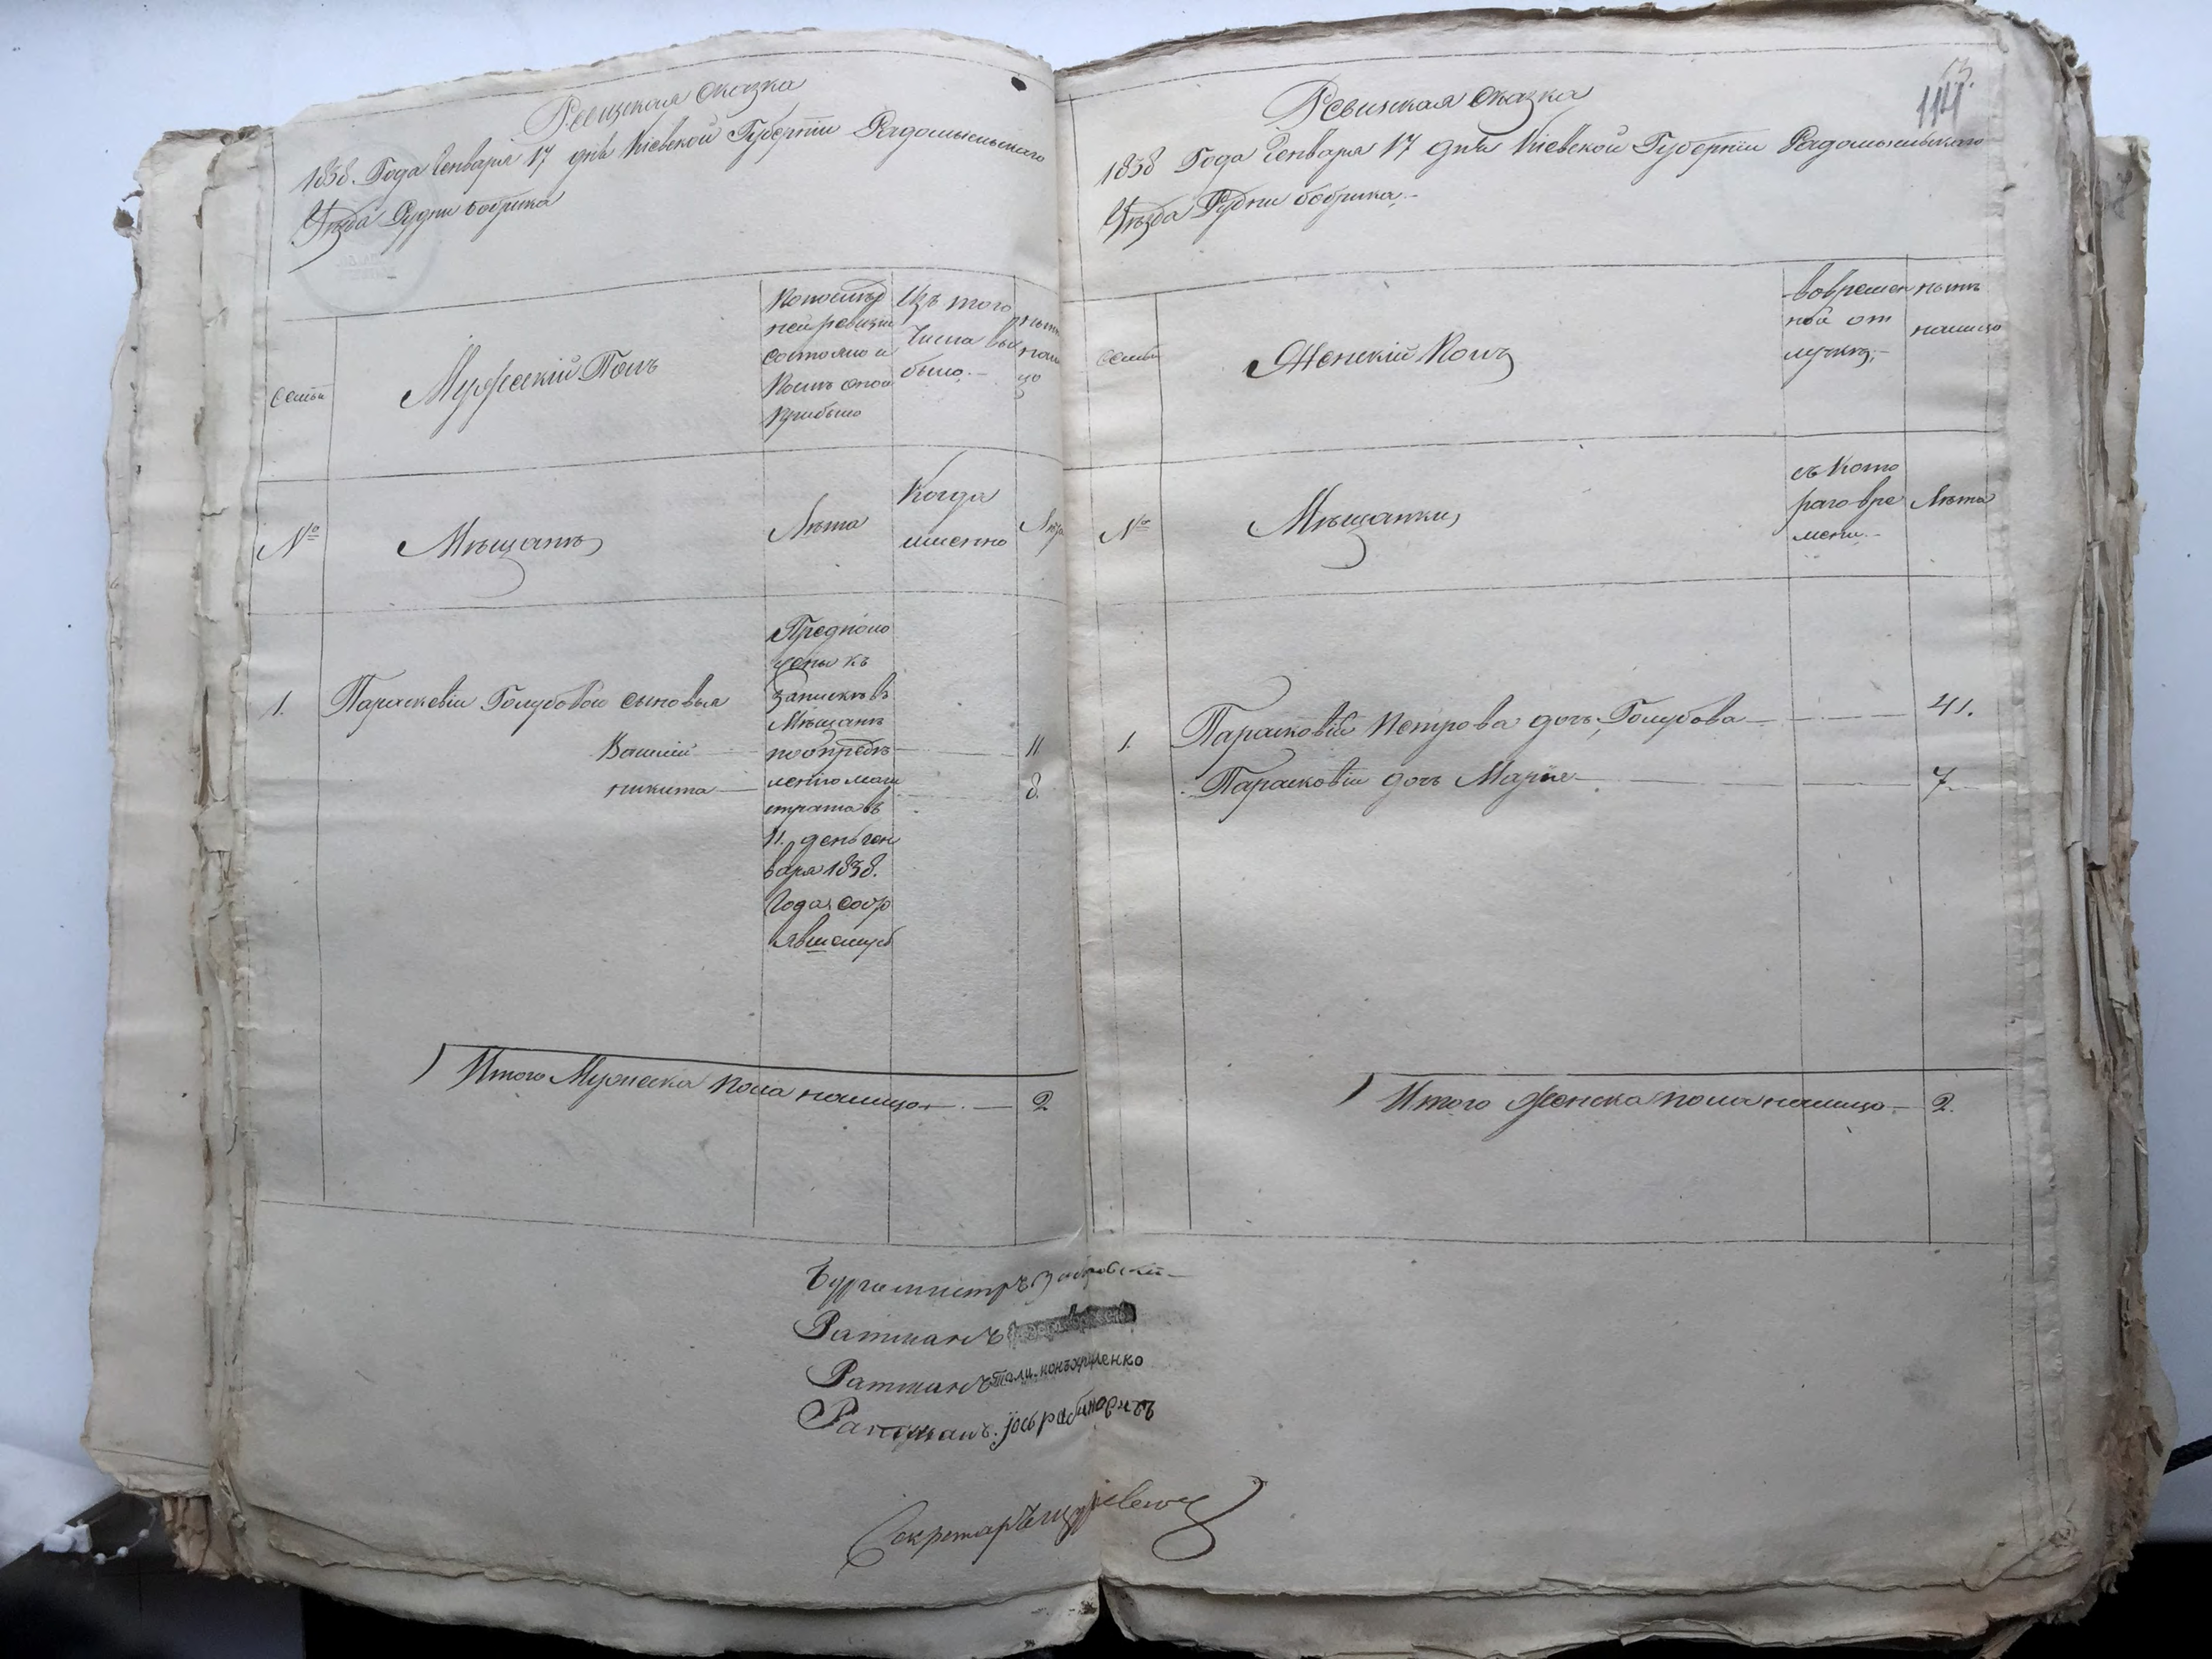 Ревизская Сказка
1838. Года Генваря 17 дня Кіевской Губерніи Радомысльскаго
Уѣзда Рудни бобрика
Семьи
Мужескій Полъ
Попослѣд
ней ревизіи
состояло и
Послѣ оной
Прибыло
Изъ того
Числа вы
было.
нынѣ
нали
цо
№
Мѣщанъ
Лѣта
Когда
именно
Лѣта
1. Параскевіи Голубовой сыновья
Василій 11
никита 8.
Предполо
жены къ
запискѣ въ
Мѣщанъ
поопредѣ
ленію маги
страта въ
11. день ген
варя 1838.
Года состо
явшемуся
Итого Мужеска пола налицо 2
Ревизская Сказка
114.
1838 Года Генваря 17 дня Кіевской Губерніи Радомысльскаго
Уѣзда Рудни бобрика.
Семьи
Женскій Полъ
вовремен
ной от
лучкѣ,
нынѣ
налицо
№
Мѣщанки
съ Кото
раго вре
мени.
Лѣта
1. Парасковія Петрова дочь, Голубова 41.
Парасковіи дочь Марія 7
Итого Женска пола налицо 2.
Бургомистръ
Ратманъ
Ратманъ
Ратманъ. Јось рабиновичъ
Секретарь